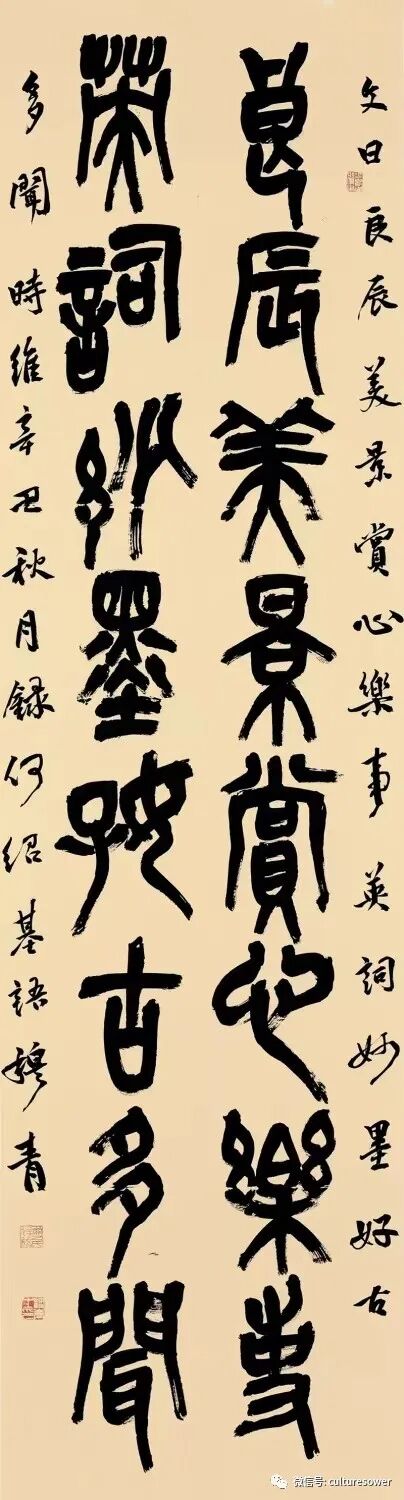 文曰良辰美景賞心樂事英詞妙墨好古
良辰美景賞心樂事
英詞妙墨好古多聞
多聞時維辛丑秋月錄何紹基語穆青
微信号: culturesower